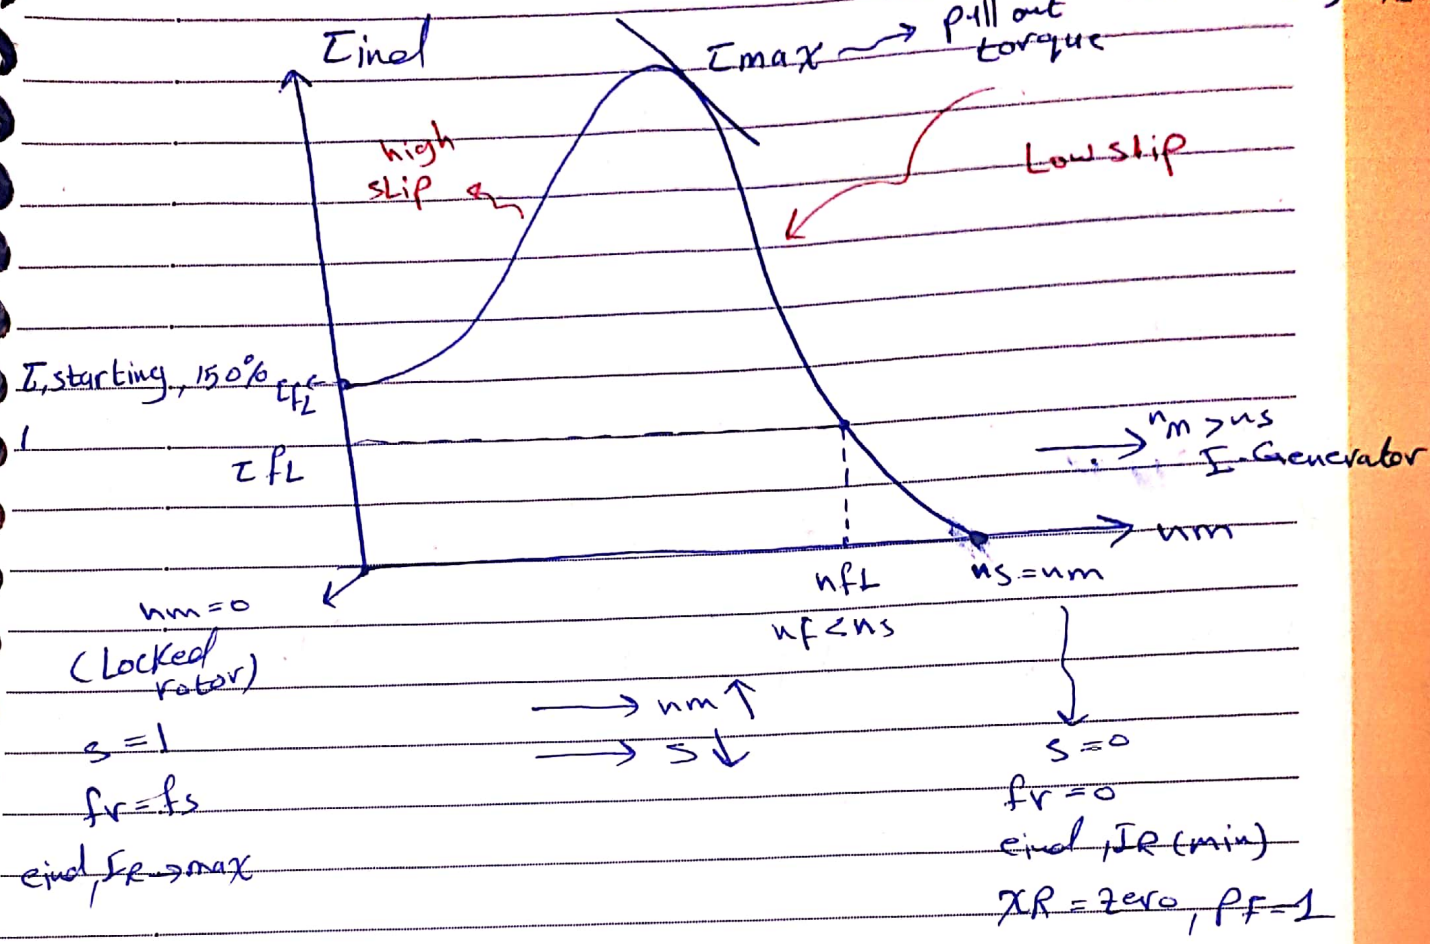 τind
τmax → pull out
torque
high
slip
Low slip
τ, starting, 150% τfL
τfL
nm > ns
I-Generator
nm
nfL
ns = nm
nf < ns
nm = 0
(Locked
rotor)
→ nm ↑
→ s ↓
s = 1
s = 0
fr = fs
fr = 0
eind, IR → max
eind, IR (min)
XR = zero, PF = 1